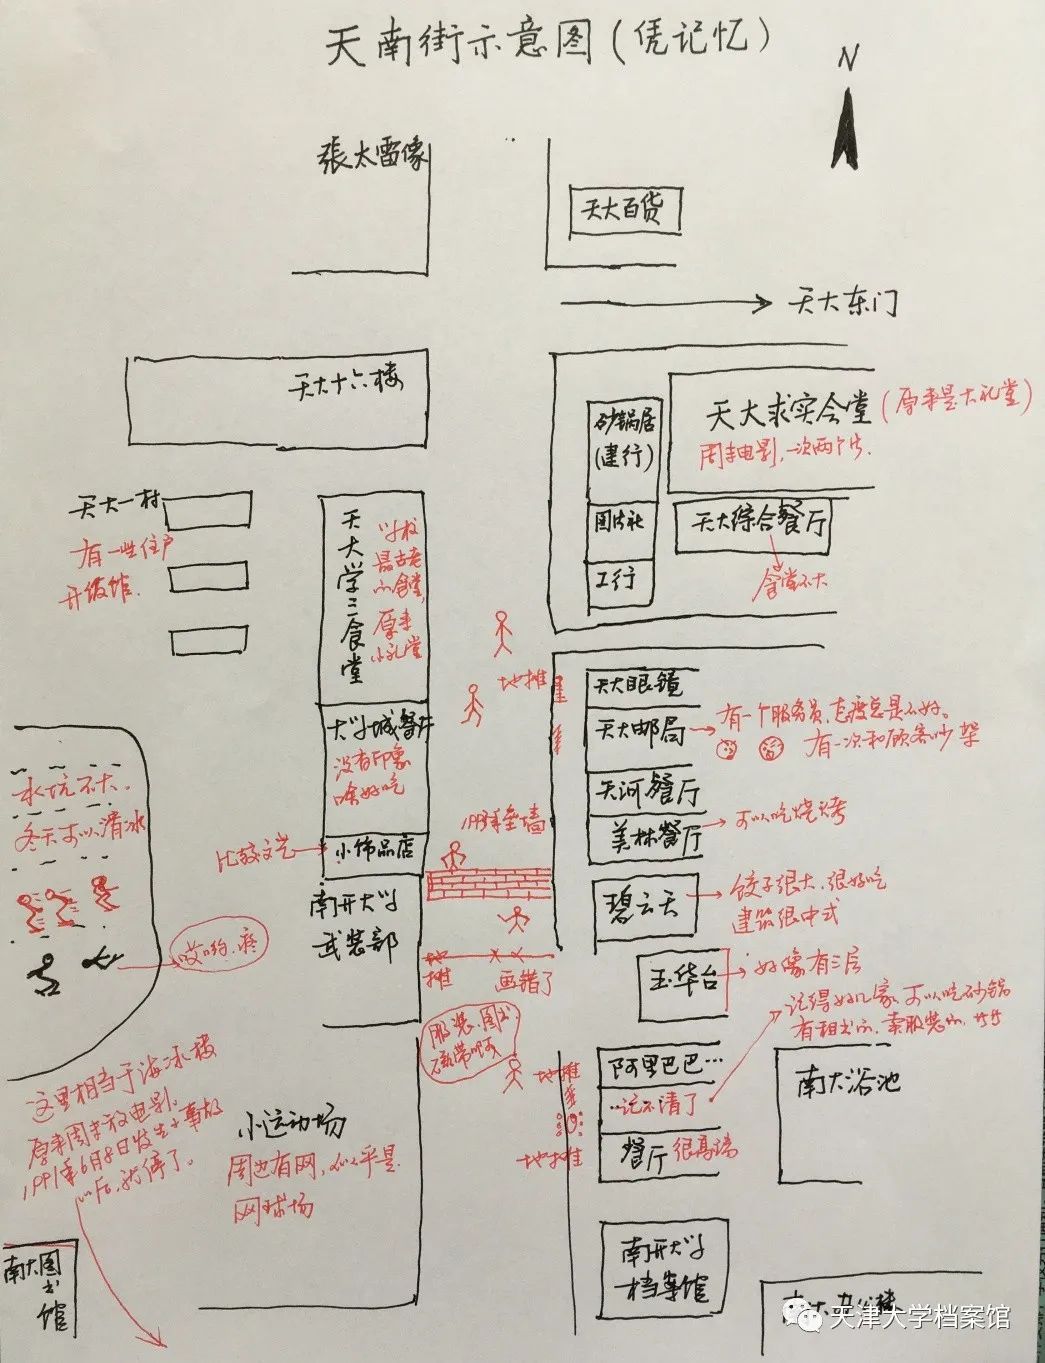 天南街示意图(凭记忆)
N
張太雷像
天大百货
天大东门
天大十六楼
砂锅居
(建行)
天大求实会堂
(原来是大礼堂)
周末电影,一次两个片.
图片社
天大综合餐厅
工行
食堂不大
天大一村
有一些住户
开饭馆.
天大学三食堂
学校
最古老
小食堂,
原来
小礼堂
地摊
天大眼镜
天大邮局
有一个服务员,态度总是不好。
有一次和顾客吵架
大学城餐厅
没有印象
啥好吃
天河餐厅
美林餐厅
可以吃烧烤
水坑不大.
冬天可以滑冰
比较文艺
小饰品店
垒墙
碧云天
饺子很大.很好吃
建筑很中式
南开大学
武装部
哎哟.疼
地摊
画错了
玉华台
好像有三层
记得好几家,可以吃砂锅
服装.图书
磁带
阿里巴巴…
…记不清了
餐厅
很高端
地摊
地摊
南大浴池
小运动场
周边有网,似乎是
网球场
这里相当于海冰楼
原来周末放电影.
1991年6月8日发生
就停了。
南大图书馆
南开大学
档案馆
南大办公楼
天津大学档案馆